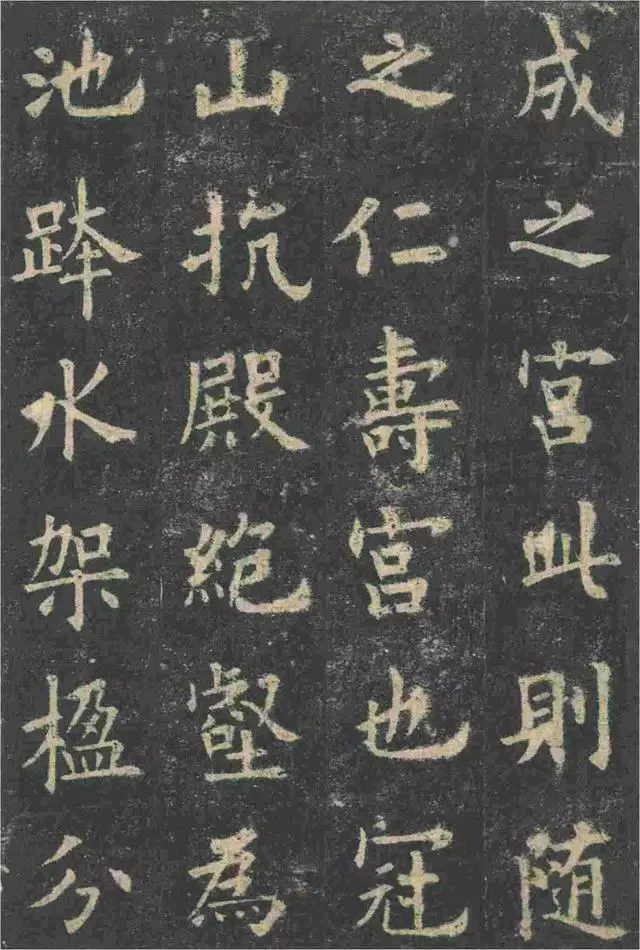 成之宮此則随
之仁壽宮也冠
山抗殿絶壑為
池跨水架楹分